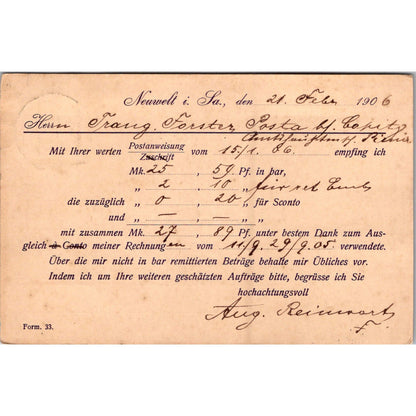 Neuwelt i. Sa., den 21. Febr. 1906
Herrn Traug. Forster, Posta b/. Copitz
Amtshauptm. Pirna
Mit Ihrer werten Postanweisung vom 15/1. 06. empfing ich
Zuschrift
Mk. 25, 59 Pf. in bar,
„ 2 „ 10 „ für ret. Emb.
die zuzüglich „ 0 „ 20 „ für Sconto
und „ — „ — „ —
mit zusammen Mk. 27 „ 89 Pf. unter bestem Dank zum Aus-
gleich à Conto meiner Rechnungen vom 11/9. 29/9. 05. verwendete.
Über die mir nicht in bar remittierten Beträge behalte mir Übliches vor.
Indem ich um Ihre weiteren geschätzten Aufträge bitte, begrüsse ich Sie
hochachtungsvoll
Aug. Reinwart
Form. 33.